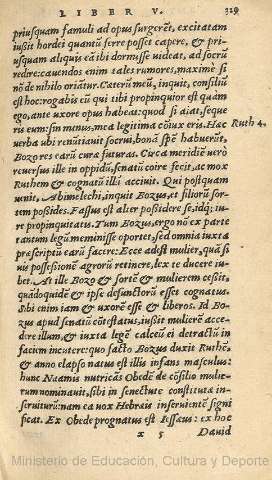 LIBER V. 329
priusquam famuli ad opus surgerẽt, excitatam
iußit hordei quantũ ferre posset capere, & pri-
usquam aliquis eã ibi dormisse videat, ad socrũ
redire: cauendos enim tales rumores, maxime si
nõ de nihilo oriãtur. Caterũ meũ, inquit, consiliũ
est hoc: rogabis eũ qui tibi propinquior est quàm
ego, ante uxore opus habeat: quod si aiat, seque-
ris eum: sin minus, mea legitima cõiux eris. Hæc Ruth 4.
verba ubi renũtiauit socrui, bonã spẽ habuerũt,
Bozo res earũ curæ futuras. Circa meridiẽ uerò
reuersus ille in oppidũ, senatũ coire fecit, ac mox
Ruthem & cognatũ illi acciuit. Qui postquam
uenit, Abimelechi, inquit Bozus, et filiorũ sor-
tem poßides. Fassus est alter poßidere se, idq; iu-
re propinquitatis. Tum Bozus, ergo nõ ex parte
tantum legũ meminisse oportet, sed omnia iuxta
præscriptũ earũ facere: Ecce adest mulier, quã si
uis possesionẽ agrorũ retinere, lex te ducere iu-
bet. At ille Bozo & sortẽ & mulierem ceßit,
quãdoquidẽ & ipse defunctorũ esset cognatus.
Sibi enim iam & uxorẽ esse & liberos. Id Bo-
zus apud senatũ cõtestatus, iußit mulierẽ acce-
dere illum, & iuxta legẽ calceũ ei detractũ in
faciem incutere: quo facto Bozus duxit Ruthẽ,
& anno elapso natus est illis infans masculus:
hunc Naamis nutricãs Obedẽ de cõsilio mulie-
rum nominauit, sibi in senectute constituta in-
seruiturũ: nam ea vox Hebræis inseruientẽ signi
ficat. Ex Obede prognatus est Iessæus: ex hoc
x 5 David
Ministerio de Educación, Cultura y Deporte